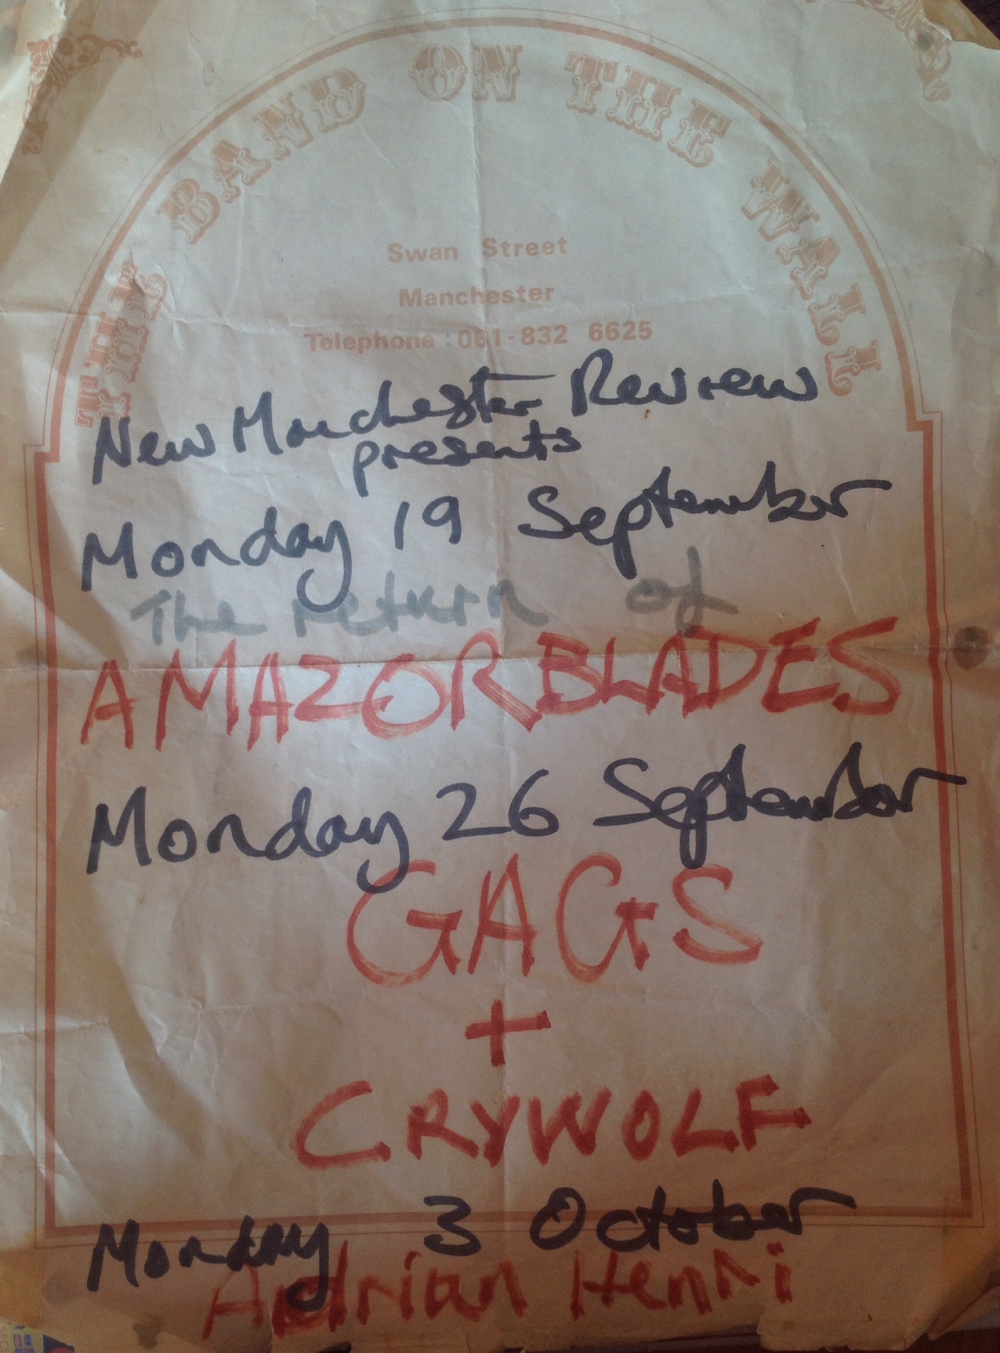 THE BAND ON THE WALL
Swan Street
Manchester
Telephone : 061-832 6625
New Manchester Review
presents
Monday 19 September
The return of
AMAZORBLADES
Monday 26 September
GAGS
+
CRYWOLF
Monday 3 October
Adrian Henri